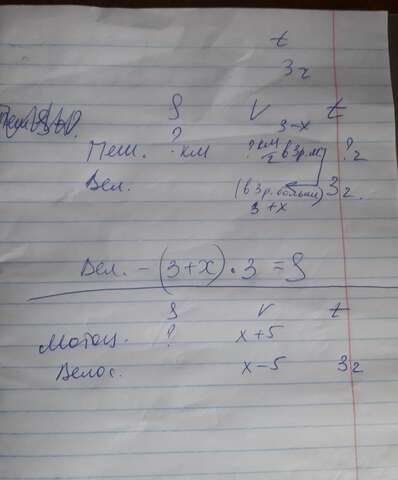 t
3 ч
S V t
3-x
Пеш. ? км ? км/ч в 3 р. м ? ч
Вел. (в 3 р. больше) 3 ч.
3 + x
Вел. - (3+x) · 3 = S
S V t
Мотоц. ? x+5
Велос. x-5 3 ч